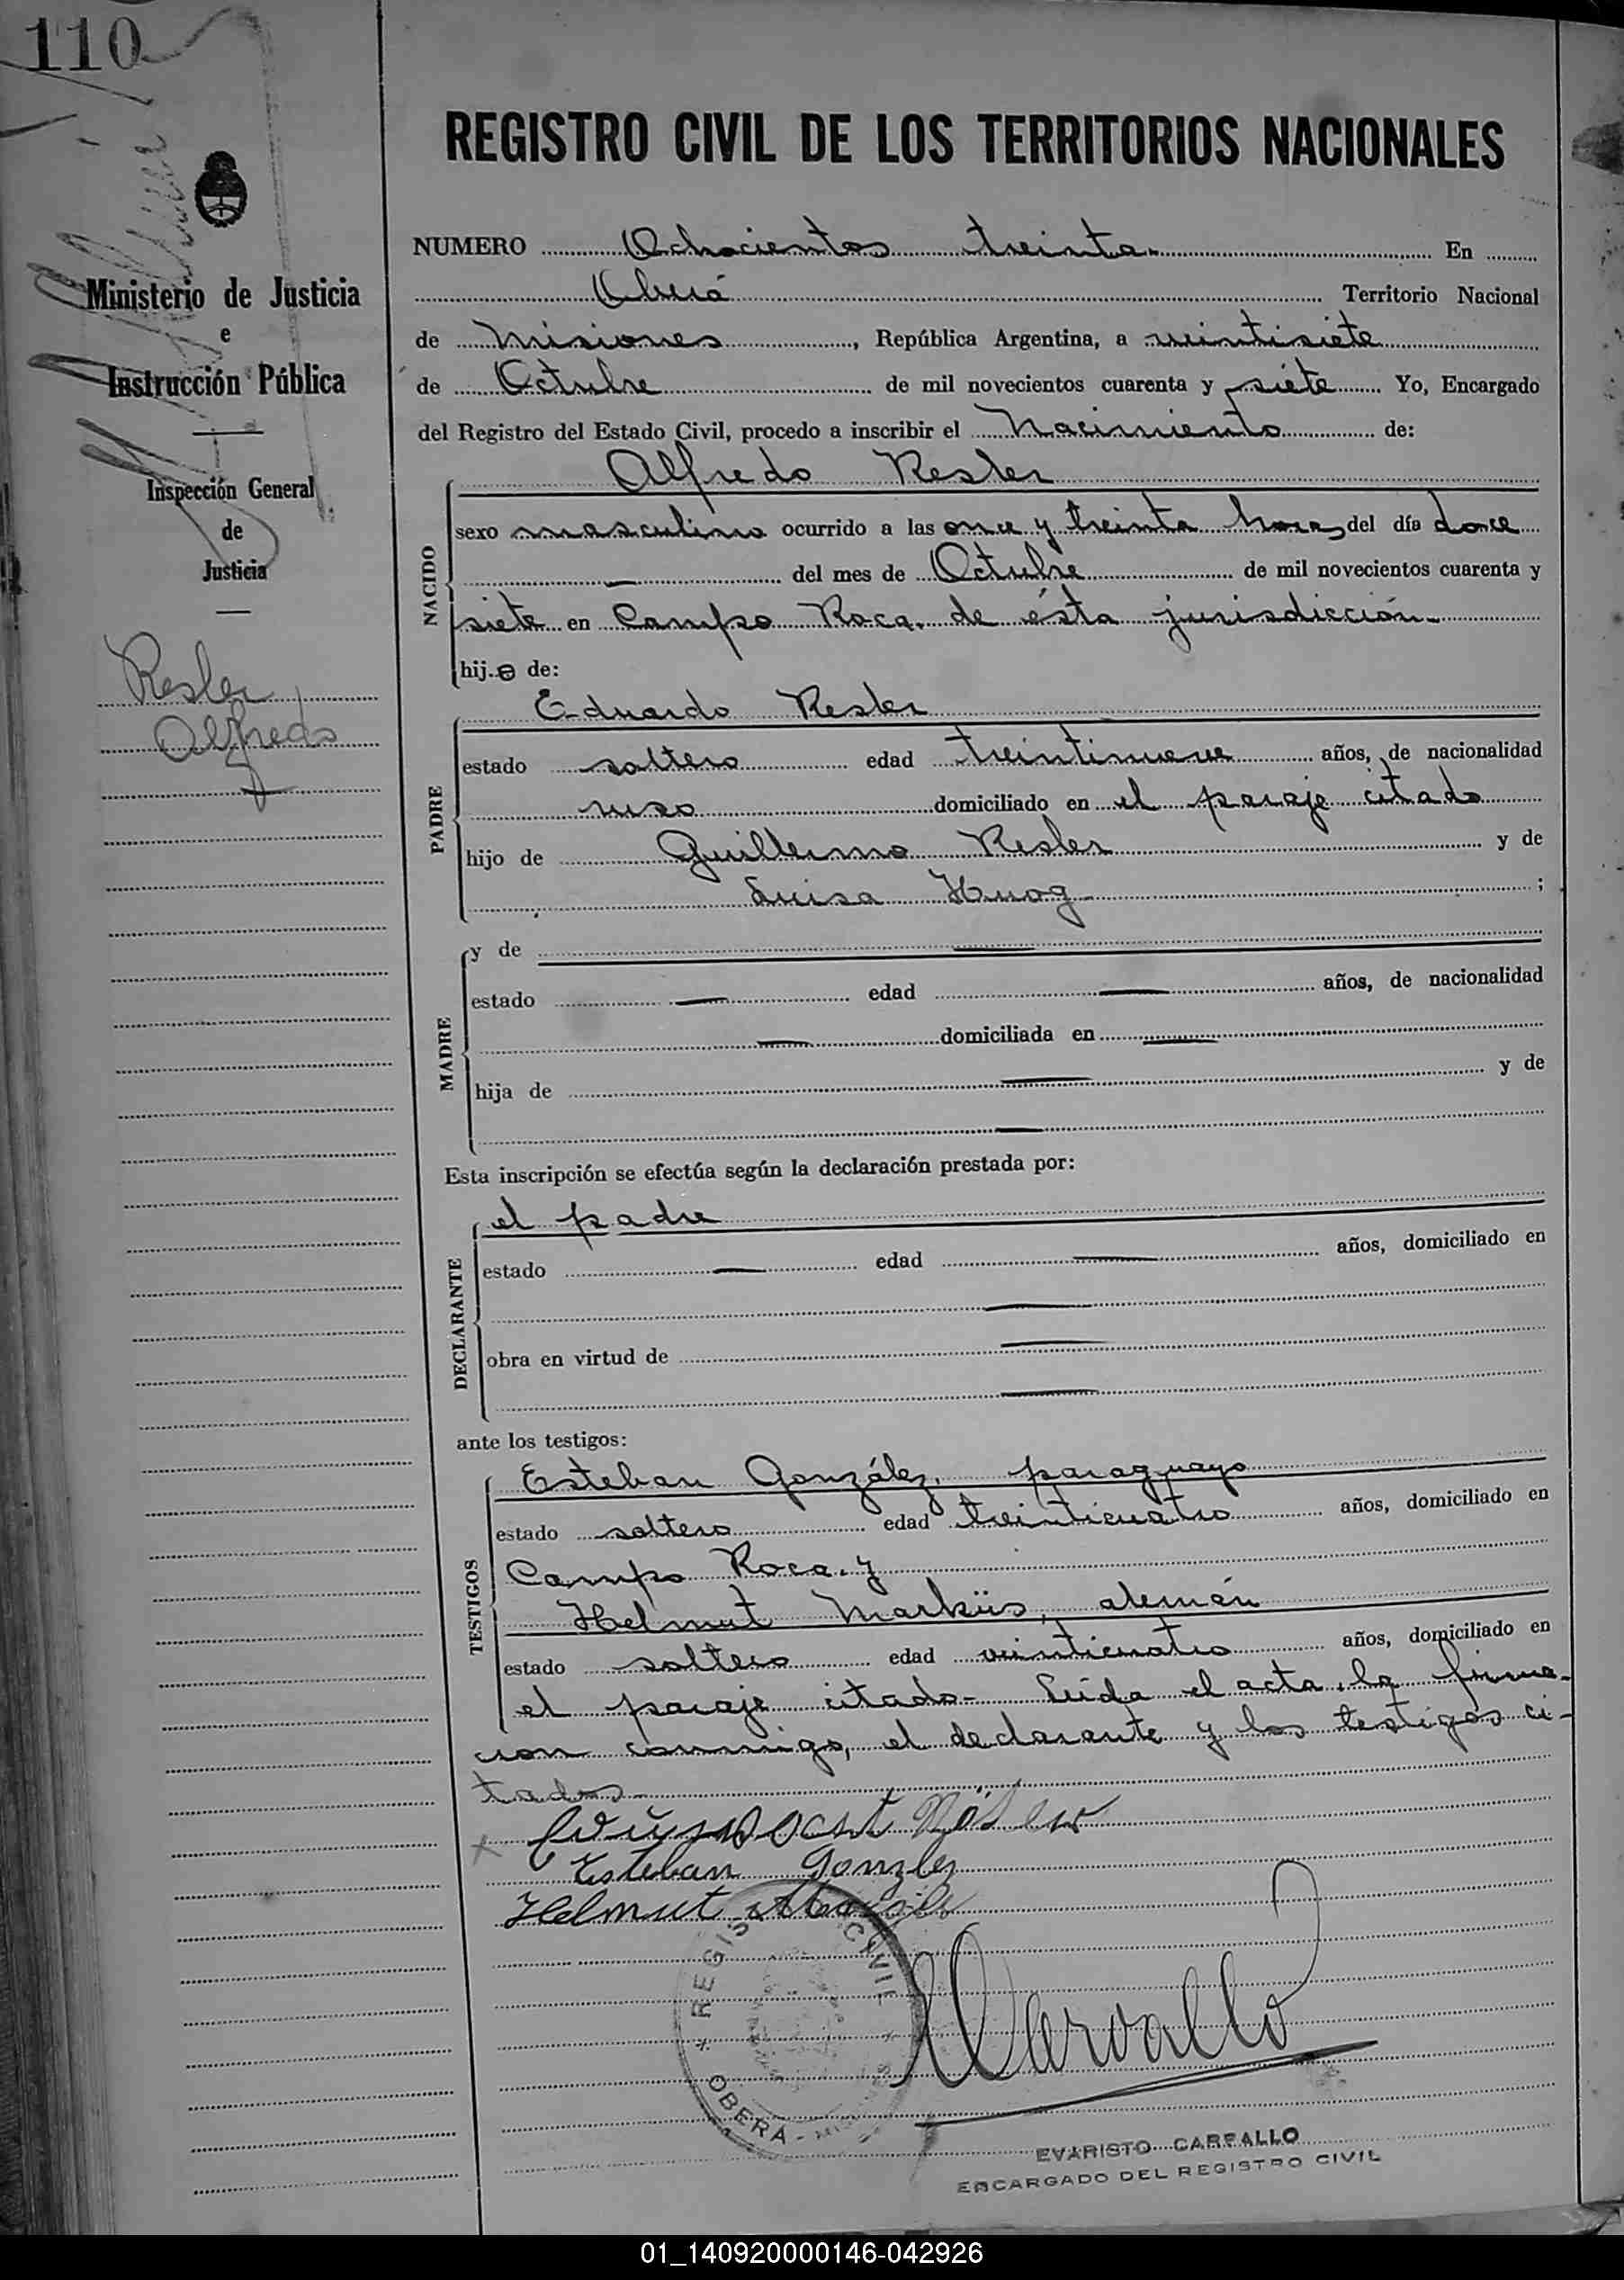 110
REGISTRO CIVIL DE LOS TERRITORIOS NACIONALES
Ministerio de Justicia
e
Instrucción Pública
Inspección General
de
Justicia
Resler
Alfredo
NUMERO Ochocientos treinta.- En
Oberá Territorio Nacional
de Misiones, República Argentina, a veintisiete
de Octubre de mil novecientos cuarenta y siete Yo, Encargado
del Registro del Estado Civil, procedo a inscribir el Nacimiento de:
Alfredo Resler
NACIDO
sexo masculino ocurrido a las once y treinta horas del día doce
— del mes de Octubre de mil novecientos cuarenta y
siete en Campo Roca, de ésta jurisdicción.-
hijo de:
Eduardo Resler
PADRE
estado soltero edad treintinueve años, de nacionalidad
ruso domiciliado en el paraje citado
hijo de Guillermo Resler y de
Luisa Huog ;
MADRE
y de —
estado — edad — años, de nacionalidad
— domiciliada en —
hija de — y de
—
Esta inscripción se efectúa según la declaración prestada por:
el padre
DECLARANTE
estado — edad — años, domiciliado en
—
obra en virtud de —
—
ante los testigos:
Esteban González, paraguayo
TESTIGOS
estado soltero edad treinticuatro años, domiciliado en
Campo Roca y
Helmut Marküs, alemán
estado soltero edad veinticuatro años, domiciliado en
el paraje citado- Leída el acta, la firma-
ron conmigo, el declarante y los testigos ci-
tados-
Esteban Gonzlez
Helmut
REGIS CIVIL
OBERA -
Carvallo
EVARISTO CARVALLO
ENCARGADO DEL REGISTRO CIVIL
01_140920000146-042926